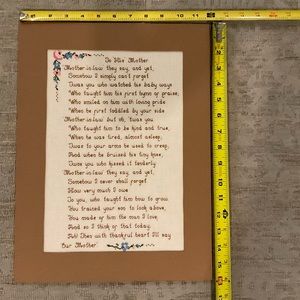 To His Mother
Mother-in-law they say, and yet,
Somehow I simply can't forget
'Twas you who watched his baby ways
Who taught him his first hymn of praise,
Who smiled on him with loving pride
When he first toddled by your side
Mother-in-law but oh, 'twas you
Who taught him to be kind and true,
When he was tired, almost asleep,
'Twas to your arms he used to creep,
And when he bruised his tiny knee,
'Twas you who kissed it tenderly
Mother-in-law they say, and yet,
Somehow I never shall forget
How very much I owe
To you, who taught him how to grow.
You trained your son to look above,
You made of him the man I love,
And so I think of that today.
Ah! Then with thankful heart I'll say
Our Mother